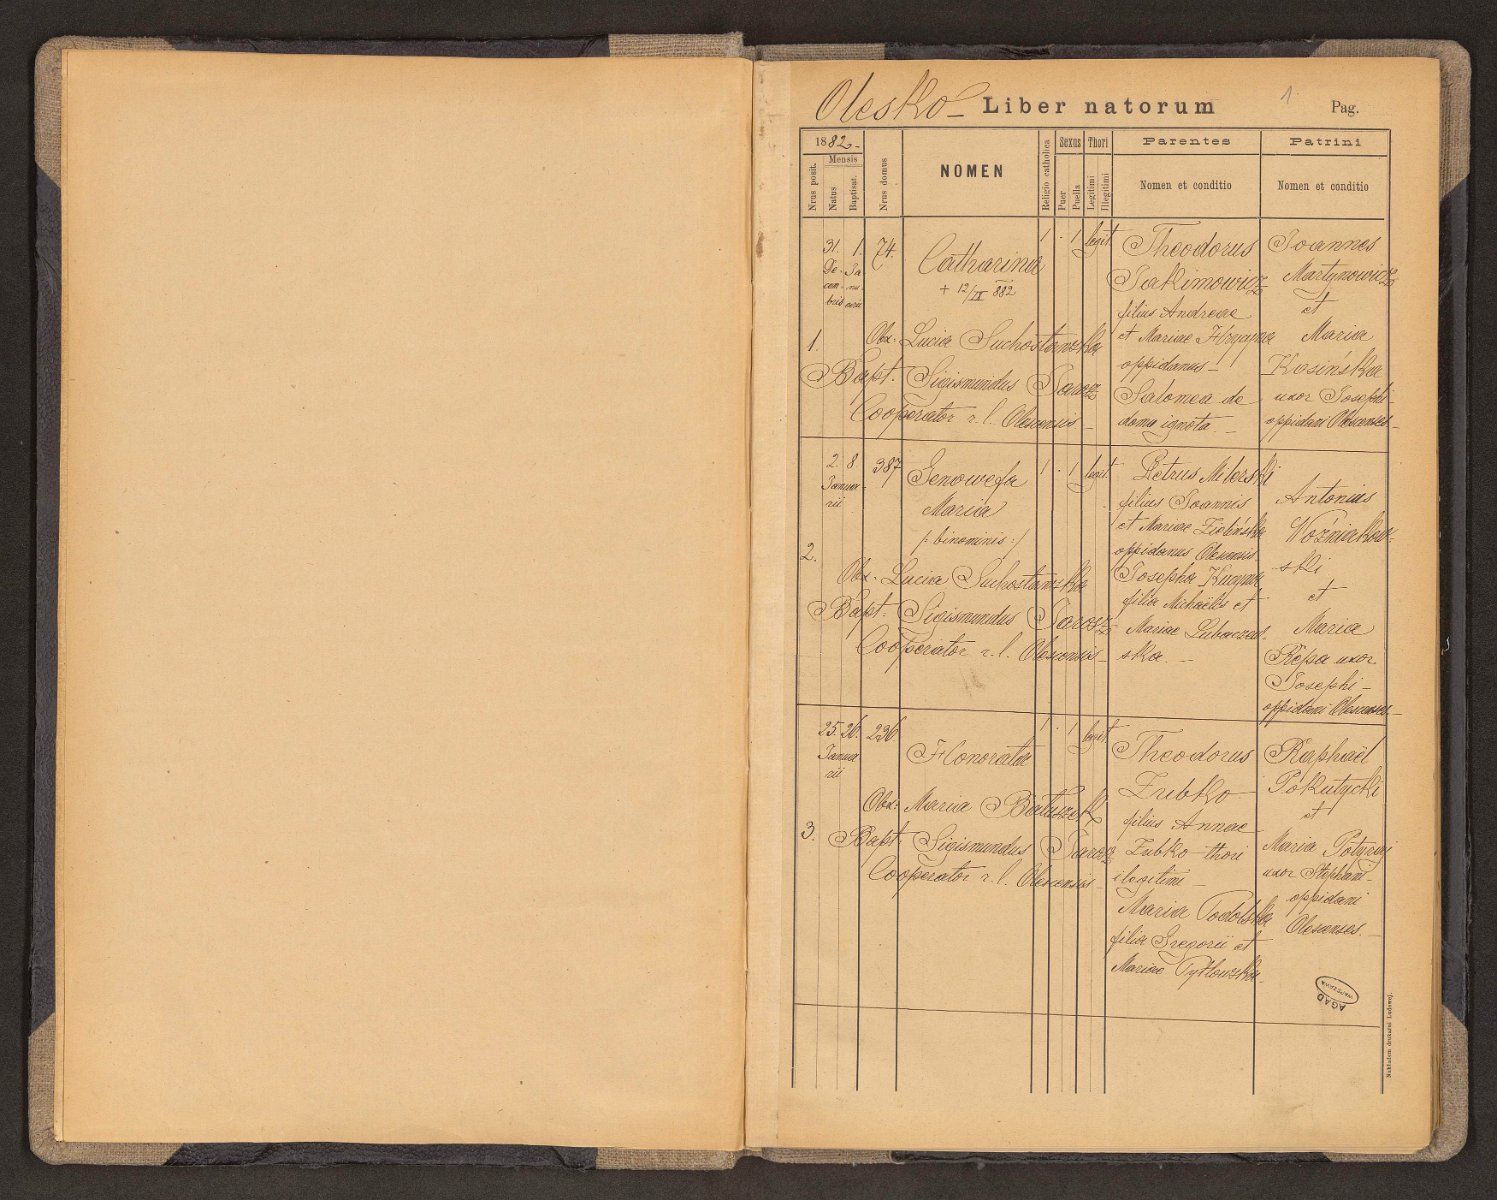 Olesko – Liber natorum 1 Pag.
1882 –
Nrus posit.
Mensis
Natus
Baptisat.
Nrus domus
NOMEN
Religio catholica
Sexus
Puer
Puella
Thori
Legitimi
Illegitimi
Parentes
Nomen et conditio
Patrini
Nomen et conditio
1.
31. 1.
De- Ja
cem- nu-
bris arii
74.
Catharina
+ 12/II 882
Obx. Lucia Suchostawska
Bapt. Sigismundus Jarosz
Cooperator r. l. Olescensis –
1 . 1 legit.
Theodorus
Jakimowicz
filius Andreae
et Mariae
oppidanus –
Salomea de
domo ignota –
Joannes
Martynowicz
et
Maria
Kosińska
uxor Josephi –
oppidani Olescenses –
2.
2. 8
Janua-
rii
387
Genowefa
Maria
/: binominis :/
Obx. Lucia Suchostawska
Bapt. Sigismundus Jarosz
Cooperator r. l. Olescensis –
1 . 1 legit.
Petrus Milerski
filius Joannis
et Mariae Zielińska
oppidanus Olescensis
Josepha
filia Michaëlis et
Mariae Lubaczew-
ska. –
Antonius
Woźniakow-
ski
et
Maria
Rępa uxor
Josephi –
oppidani Olescenses –
3.
25. 26.
Janua
rii
236.
Honorata
Obx. Maria
Bapt. Sigismundus Jarosz
Cooperator r. l. Olescensis –
1 . 1 legit.
Theodorus
Zubko
filius Annae –
Zubko thori
illegitimi –
Maria Podolska
filia Gregorii et
Mariae
Raphaël
Pokutycki
et
Maria
uxor Stephani –
oppidani
Olescenses. –
AGAD
WARSZAWA
Nakładem drukarni Ludowej.